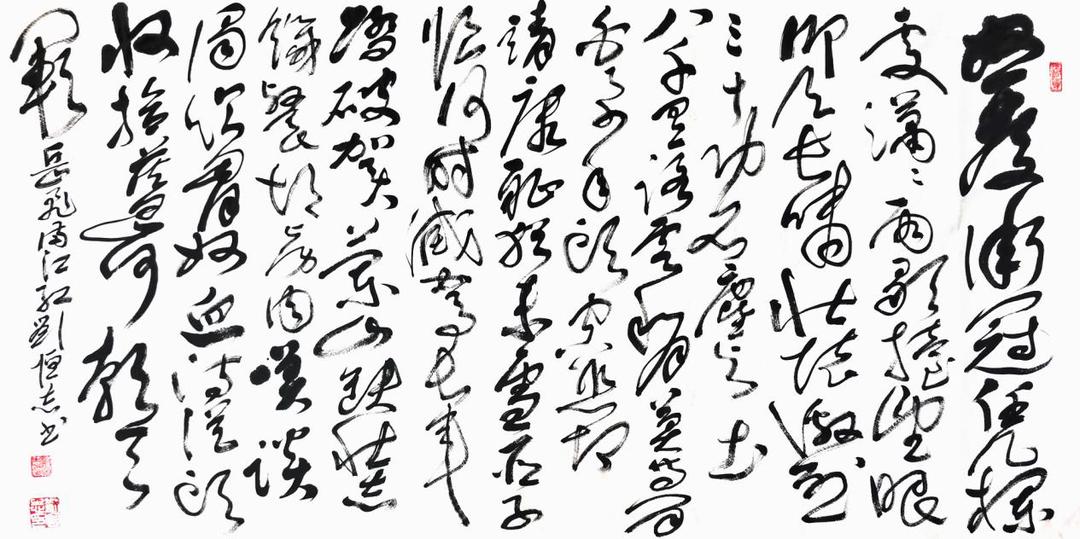 怒髮衝冠凭欄
處瀟々雨歇擡望眼
仰天長嘯壯懷激烈
三十功名塵與土
八千里路雲和月莫等閒
白了少年頭空悲切
靖康恥猶未雪臣子
恨何時滅駕長車
踏破賀蘭山缺壯志
饑餐胡虜肉笑談
渴飲匈奴血待從頭
收拾舊山河朝天
闕 岳飛滿江紅劉恒志书